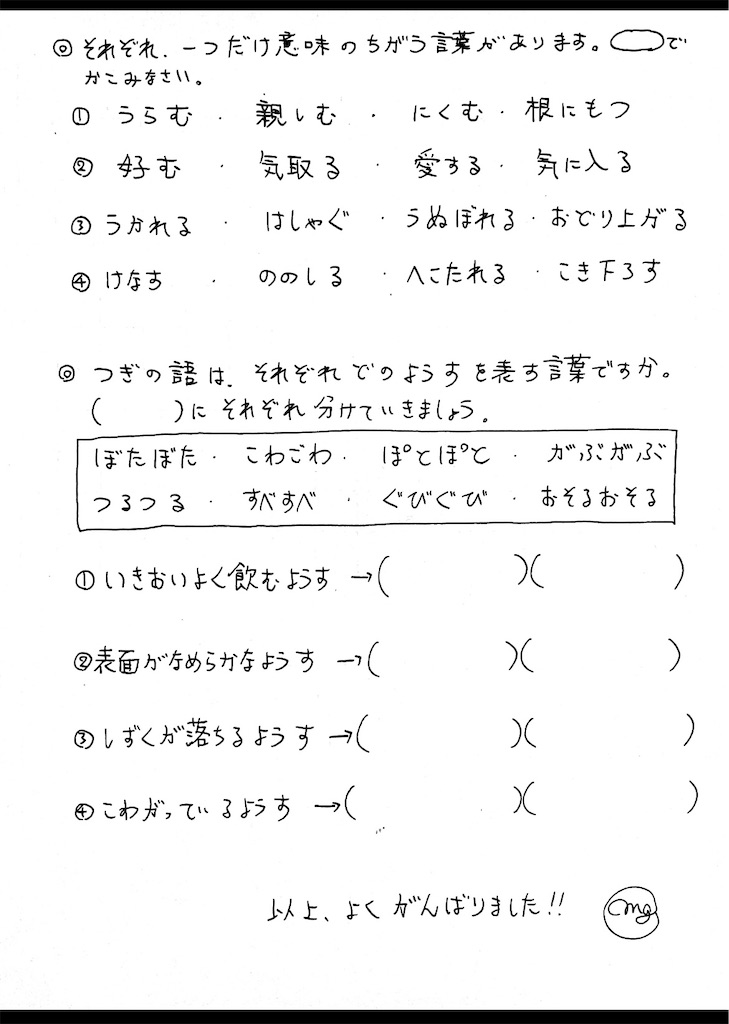 ◎ それぞれ、一つだけ意味のちがう言葉があります。◯で
かこみなさい。
① うらむ ・ 親しむ ・ にくむ ・ 根にもつ
② 好む ・ 気取る ・ 愛する ・ 気に入る
③ うかれる ・ はしゃぐ ・ うぬぼれる ・ おどり上がる
④ けなす ・ ののしる ・ へこたれる ・ こき下ろす
◎ つぎの語は、それぞれどのようすを表す言葉ですか。
( )に それぞれ 分けていきましょう。
ぼたぼた ・ こわごわ ・ ぽとぽと ・ がぶがぶ
つるつる ・ すべすべ ・ ぐびぐび ・ おそるおそる
① いきおいよく飲むようす →( )( )
② 表面がなめらかなようす →( )( )
③ しずくが落ちるようす →( )( )
④ こわがっているようす →( )( )
以上、よく がんばりました!!